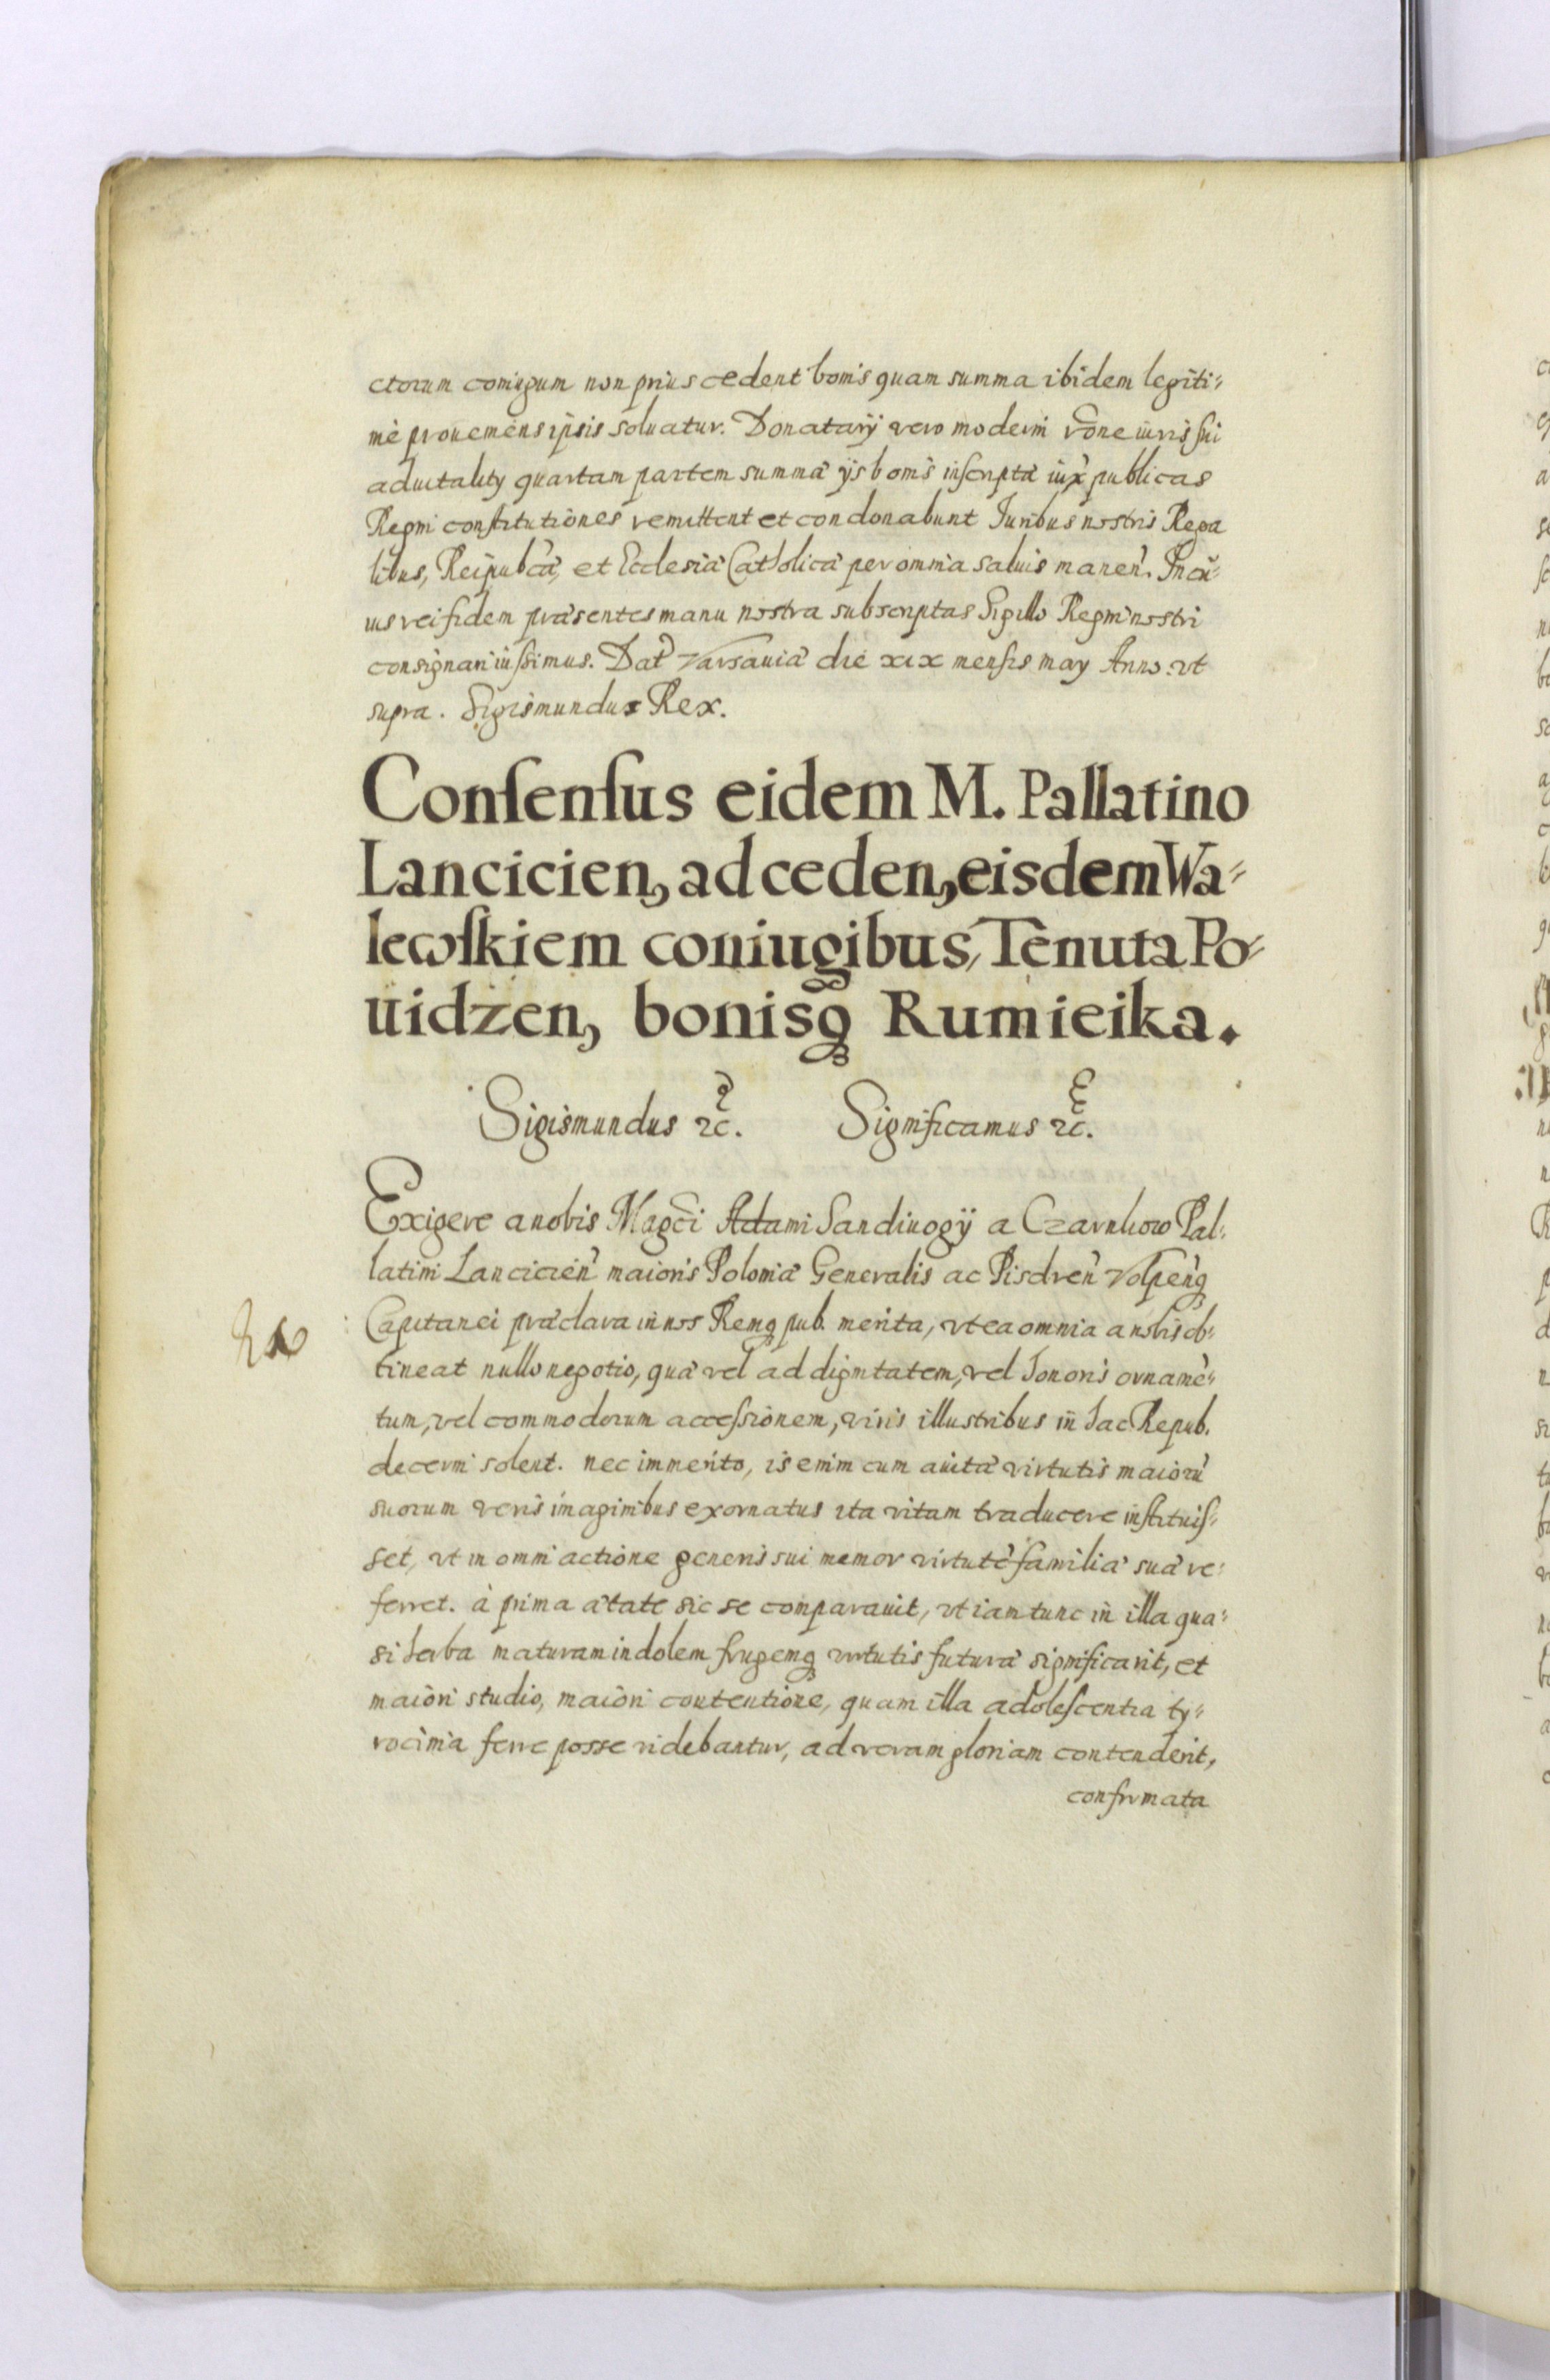 ctorum coniugum non prius cedent bonis quam summa ibidem legiti⸗
mè proueniens ipsis soluatur. Donatarÿ vero moderni rõne iuris sui
aduitality quartam partem summà ÿs bonis inscriptà iux̀ publicas
Regni constitutiones remittent et condonabunt Iuribus nostris Rega
libus, Reipubcà, et Ecclesià Catholicà per omnia saluis manen̄. In cu⸗
ius rei fidem pràsentes manu nostra subscriptas Sigillo Regni nostri
consignari iussimus. Dat̄ Varsauià die xix mensis may Anno vt
supra. Sigismundus Rex.
Conſenſus eidem M. Pallatino
Lancicien, ad ceden, eisdem Wa⸗
lewſkiem coniugibus, Tenuta Po⸗
uidzen, bonisq́ꝫ Rumieika.
Sigismundus ꝛc̃. Significamus ꝛc̃.
Exigere a nobis Magc̃i Adami Sandiuogÿ a Czarnkow Pal⸗
latini Lancicien̄ maioris Polonià Generalis ac Pisdren̄ Volpen̄qꝫ
Capitanei pràclara in nos Remqꝫ pub. merita, vt ea omnia a nobis ob⸗
tineat nullo negotio, quà vel ad dignitatem, vel honoris ornamẽ⸗
tum, vel commodorum accessionem, viris illustribus in hac Repub.
decerni solent. nec immerito, is enim cum auità virtutis maiorũ
suorum veris imaginibus exornatus ita vitam traducere instituis⸗
set, vt in omni actione generis sui memor virtutẽ familià suà re⸗
ferret. à prima àtate sic se comparauit, vt iam tunc in illa qua⸗
si herba maturam indolem frugemqꝫ virtutis futurà significarit, et
maiori studio, maiori contentione, quam illa adolescentia ty⸗
rocinia ferre posse videbantur, ad veram gloriam contenderit,
confirmata